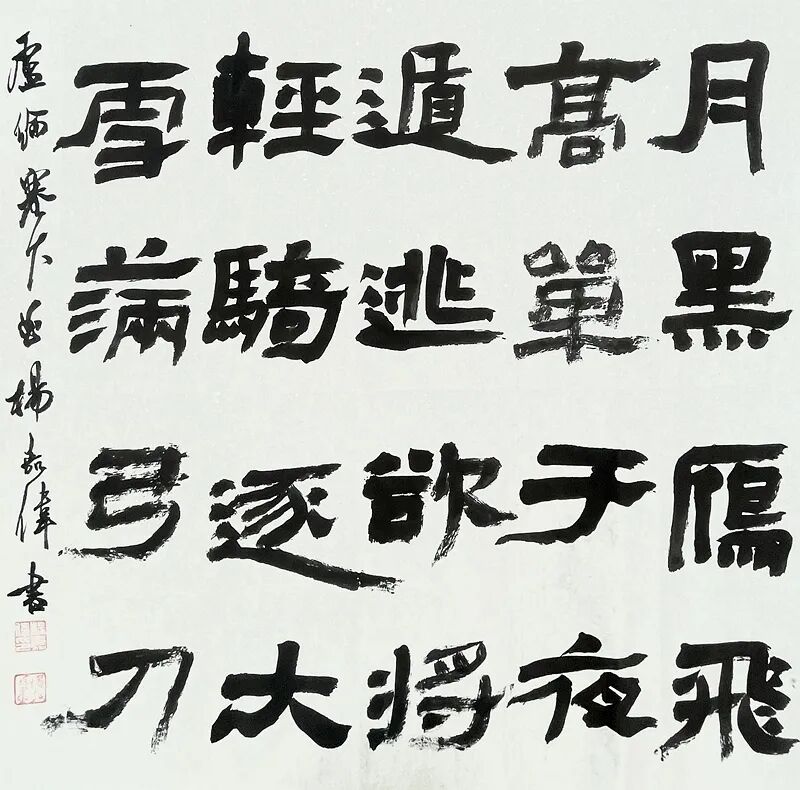 月黑鴈飛
髙單于夜
遁逃欲將
輕騎逐大
雪滿弓刀
盧綸塞下曲楊偉書